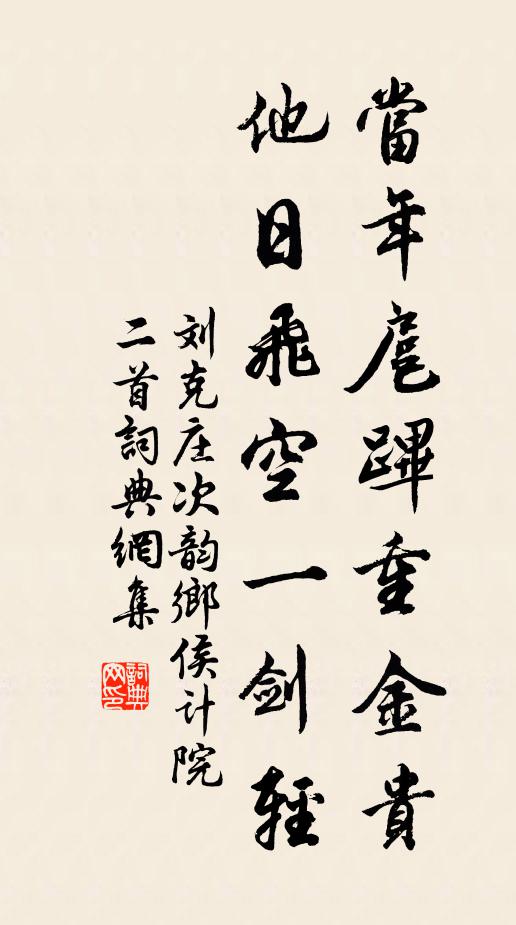 當年扈蹕重金貴
他日飛空一劍輕
刘克庄次韵鄉侯计院
二首詞典網集
詞典網印